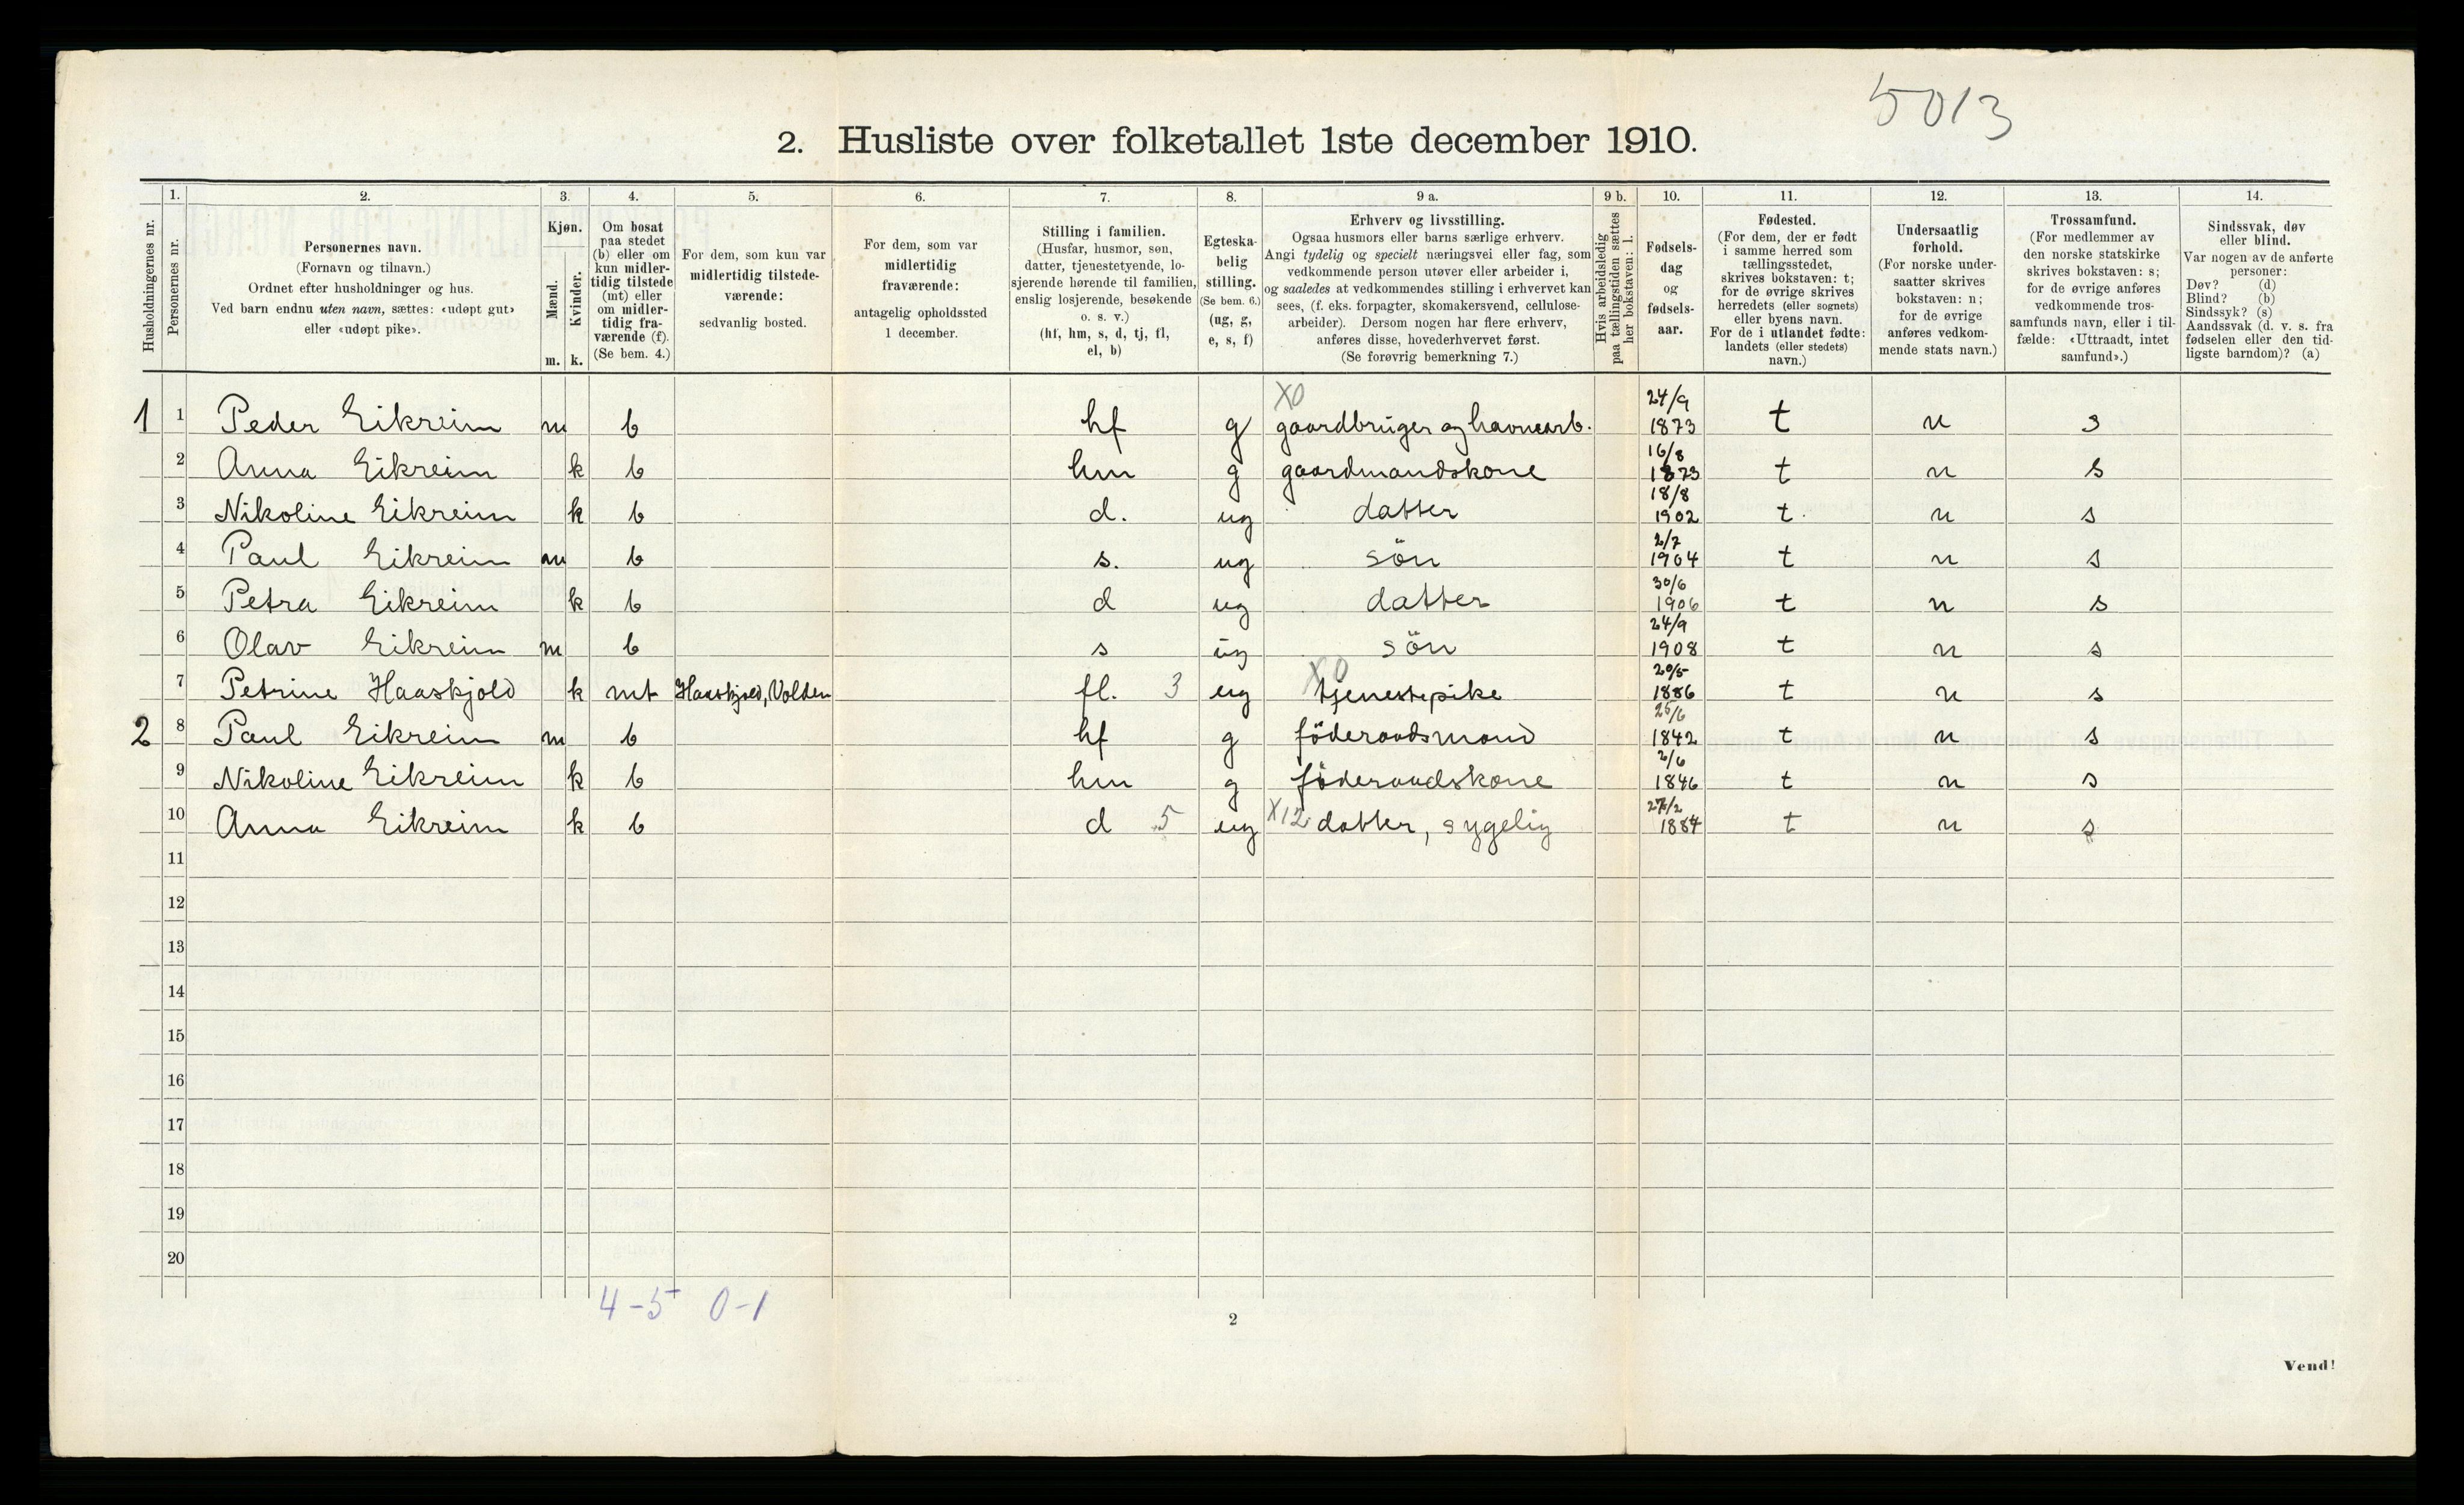 5013
2. Husliste over folketallet 1ste december 1910.
Husholdningernes nr.
1. Personernes nr.
2. Personernes navn.
(Fornavn og tilnavn.)
Ordnet efter husholdninger og hus.
Ved barn endnu uten navn, sættes: «udøpt gut»
eller «udøpt pike».
3. Kjøn.
Mænd. m.
Kvinder. k.
4. Om bosat
paa stedet
(b) eller om
kun midler-
tidig tilstede
(mt) eller
om midler-
tidig fra-
værende (f).
(Se bem. 4.)
5. For dem, som kun var
midlertidig tilstede-
værende:
sedvanlig bosted.
6. For dem, som var
midlertidig
fraværende:
antagelig opholdssted
1 december.
7. Stilling i familien.
(Husfar, husmor, søn,
datter, tjenestetyende, lo-
sjerende hørende til familien,
enslig losjerende, besøkende
o. s. v.)
(hf, hm, s, d, tj, fl,
el, b)
8. Egteska-
belig
stilling.
(Se bem. 6.)
(ug, g,
e, s, f)
9 a. Erhverv og livsstilling.
Ogsaa husmors eller barns særlige erhverv.
Angi tydelig og specielt næringsvei eller fag, som
vedkommende person utøver eller arbeider i,
og saaledes at vedkommendes stilling i erhvervet kan
sees, (f. eks. forpagter, skomakersvend, cellulose-
arbeider). Dersom nogen har flere erhverv,
anføres disse, hovederhvervet først.
(Se forøvrig bemerkning 7.)
9 b. Hvis arbeidsledig
paa tællingstiden sættes
her bokstaven: l.
10. Fødsels-
dag
og
fødsels-
aar.
11. Fødested.
(For dem, der er født
i samme herred som
tællingsstedet,
skrives bokstaven: t;
for de øvrige skrives
herredets (eller sognets)
eller byens navn.
For de i utlandet fødte:
landets (eller stedets)
navn.)
12. Undersaatlig
forhold.
(For norske under-
saatter skrives
bokstaven: n;
for de øvrige
anføres vedkom-
mende stats navn.)
13. Trossamfund.
(For medlemmer av
den norske statskirke
skrives bokstaven: s;
for de øvrige anføres
vedkommende tros-
samfunds navn, eller i til-
fælde: «Uttraadt, intet
samfund».)
14. Sindssvak, døv
eller blind.
Var nogen av de anførte
personer:
Døv? (d)
Blind? (b)
Sindssyk? (s)
Aandssvak (d. v. s. fra
fødselen eller den tid-
ligste barndom)? (a)
1 1 Peder Eikreim m b hf g X0 gaardbruger og havnearb. 24/9 1873 t n s
2 Anna Eikreim k b hm g gaardmandskone 16/8 1873 t n s
3 Nikoline Eikreim k b d. ug datter 18/8 1902 t. n s
4 Paul Eikreim m b s. ug sön 2/7 1904 t n s
5 Petra Eikreim k b d ug datter 30/6 1906 t n s
6 Olav Eikreim m b s ug sön 24/9 1908 t n s
7 Petrine Haaskjold k mt Haaskjold, Volden fl. 3 ug X0 tjenestepike 20/5 1886 t n s
2 8 Paul Eikreim m b hf g föderaadsmand 25/6 1842 t n s
9 Nikoline Eikreim k b hm g föderaadskone 2/6 1846 t n s
10 Anna Eikreim k b d 5 ug X12 datter, sygelig 27/2 1884 t n s
11
12
13
14
15
16
17
18
19
20
4-5 0-1
2
Vend!